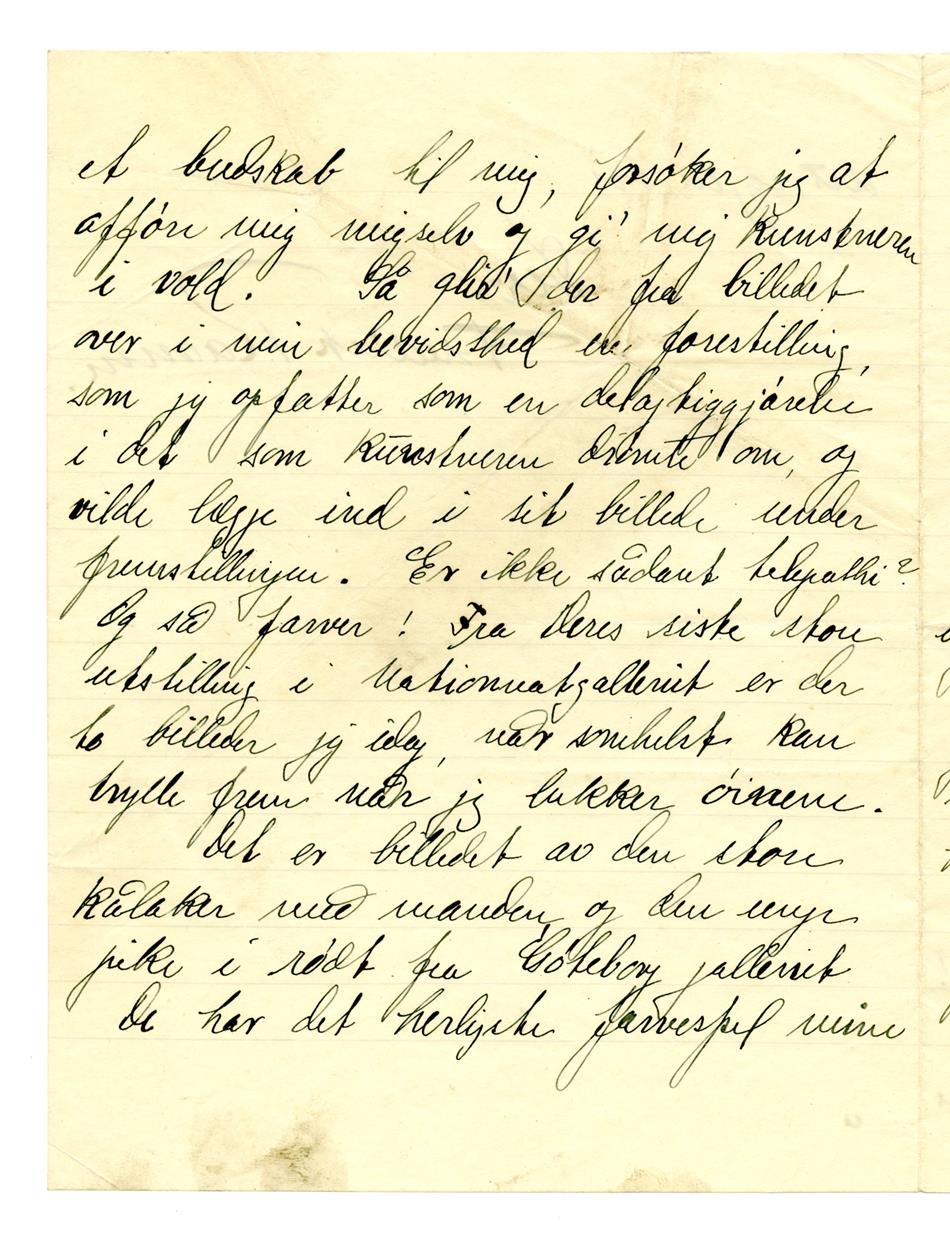 et budskab til mig, forsøker jeg at
afføre mig migselv og gi' mig kunstneren
i vold. Så glir der fra billedet
over i min bevidsthed en forestilling,
som jeg opfatter som en delagtiggjørelse
i det som kunstneren drømte om, og
vilde lægge ind i sit billede under
fremstillingen. Er ikke sådant telepathi?
Og så farver! Fra Deres siste store
utstilling i Nationnalgalleriet er der
to billeder jeg idag, når somhelst kan
trylle frem når jeg lukker øinene.
Det er billedet av den store
kålaker med manden, og den unge
pike i rødt fra Göteborg galleriet
De har det herligste farvespel mine